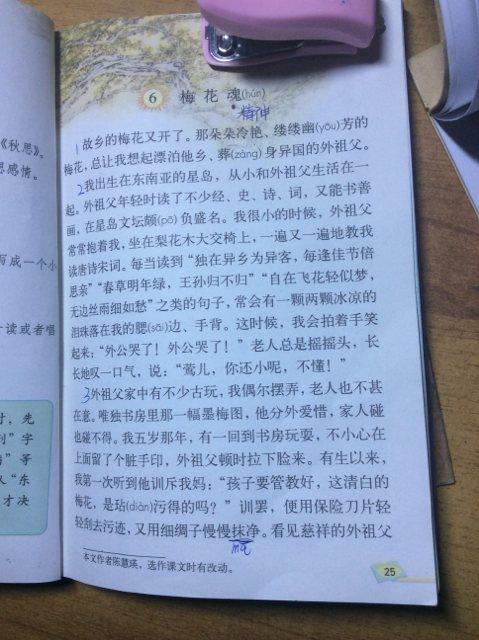 《秋思》。
思感情。
写成一个小
读或者唱
时，先
字
等
人“东
才决
6 梅花魂(hún)
精神
1故乡的梅花又开了。那朵朵冷艳、缕缕幽(yōu)芳的
梅花，总让我想起漂泊他乡、葬(zàng)身异国的外祖父。
2我出生在东南亚的星岛，从小和外祖父生活在一
起。外祖父年轻时读了不少经、史、诗、词，又能书善
画，在星岛文坛颇(pō)负盛名。我很小的时候，外祖父
常常抱着我，坐在梨花木大交椅上，一遍又一遍地教我
读唐诗宋词。每当读到“独在异乡为异客，每逢佳节倍
思亲”“春草明年绿，王孙归不归”“自在飞花轻似梦，
无边丝雨细如愁”之类的句子，常会有一颗两颗冰凉的
泪珠落在我的腮(sāi)边、手背。这时候，我会拍着手笑
起来：“外公哭了！外公哭了！”老人总是摇摇头，长
长地叹一口气，说：“莺儿，你还小呢，不懂！”
3外祖父家中有不少古玩，我偶尔摆弄，老人也不甚
在意。唯独书房里那一幅墨梅图，他分外爱惜，家人碰
也碰不得。我五岁那年，有一回到书房玩耍，不小心在
上面留了个脏手印，外祖父顿时拉下脸来。有生以来，
我第一次听到他训斥我妈：“孩子要管教好，这清白的
梅花，是玷(diàn)污得的吗？”训罢，便用保险刀片轻
轻刮去污迹，又用细绸子慢慢抹净。看见慈祥的外祖父
本文作者陈慧瑛，选作课文时有改动。
25